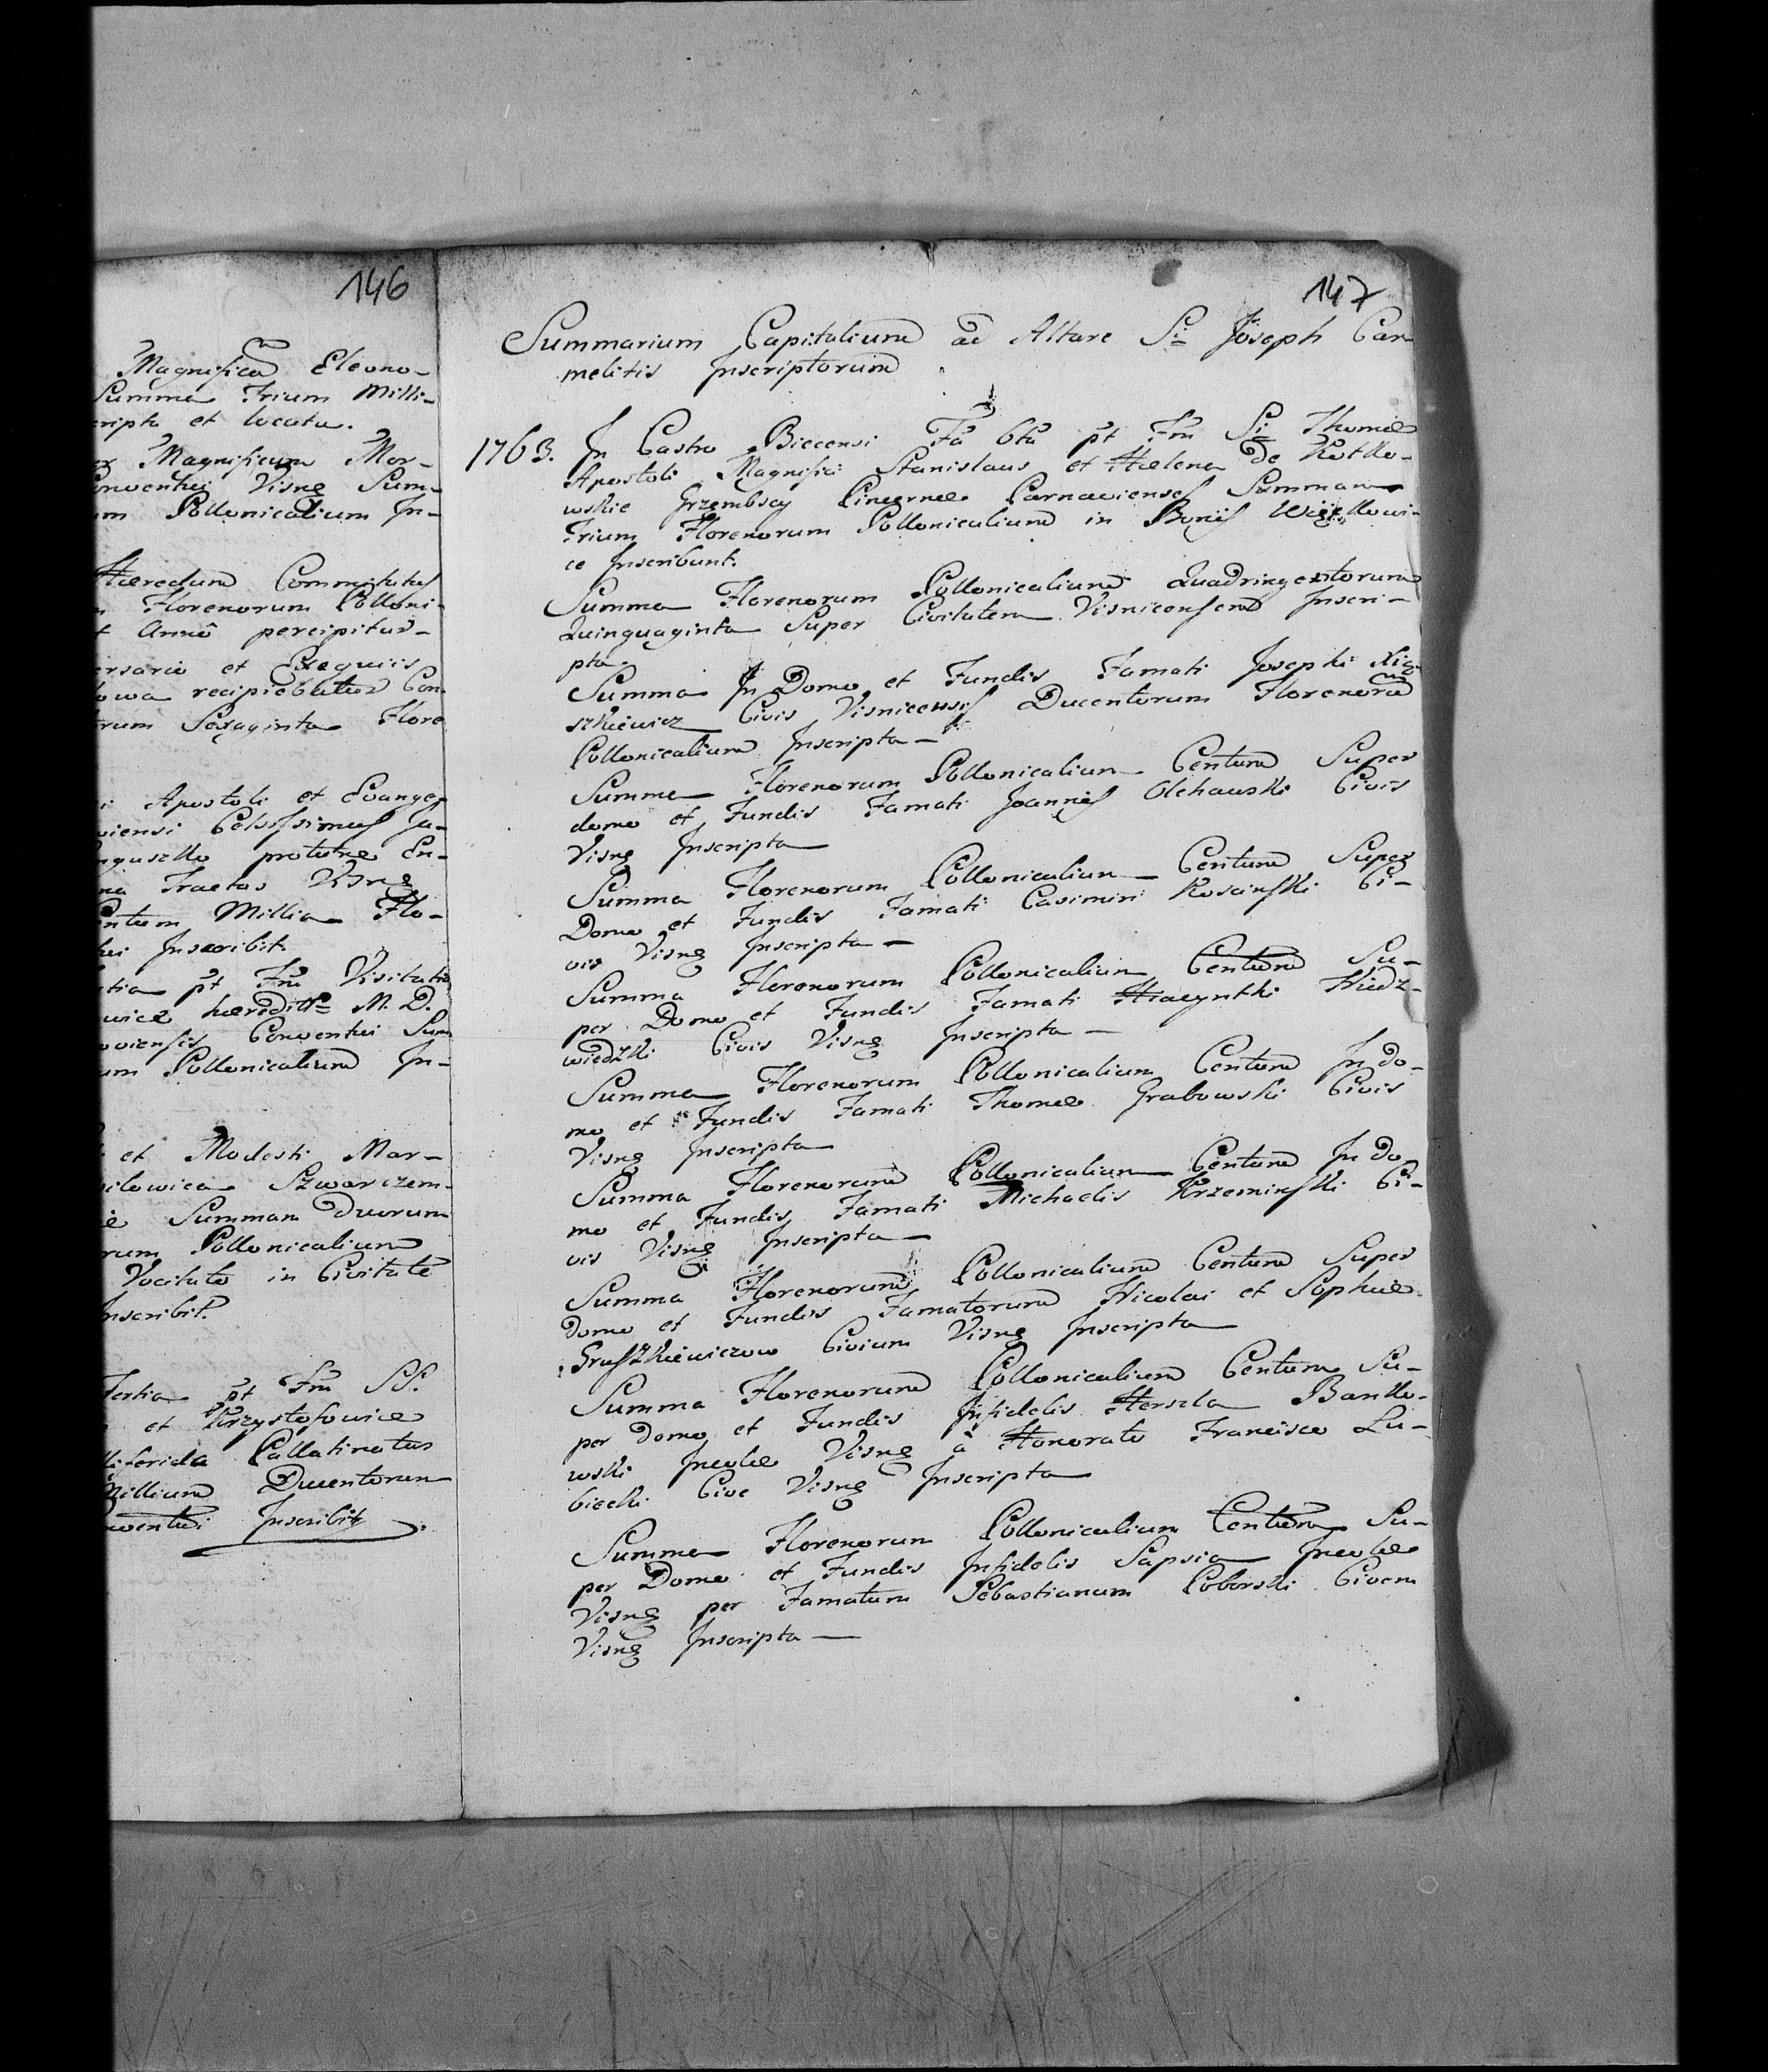 146
Magnificã Eleono-
Summa Trium Milli-
cripta et locata.
Magnificum Mar-
Conventui Visng Sum-
um Pollonicalium In-
Hæredum Committitus
Florenorum Polloni-
Anno percipitur-
ersario et Exequiis
recipiebatur Con-
rum Sexaginta Flore
Apostoli et Evange
viensi Celsissimus
nguszko
Tractus Visng
entum Millia Flo-
ui Inscribit.
tia pt Fm Visitatio
M. D.
viensis Conventui Sum
um Pollonicalium In-
et Modesti Mar-
Szwarczem-
Summam Duorum
rum Pollonicalium
Vocitato in Civitate
Inscribit.
Tertia pt Fm SS.
et Krzysztofowice
Pallatinatus
Millium Ducentorum
nventui Inscribit
147
Summarium Capitalium ad Altare Si Joseph Car
melitis Inscriptorum
1763. In Castro Biecensi Fã 6tã pt Fm Si Thomæ
Apostoli Magnifici Stanislaus et Hælena de Kotko-
wskie Grzembscy Pincernæ Parnavienses Summam
Trium Florenorum Pollonicalium in Bonis
ce Inscribunt.
Summa Florenorum Pollonicalium Quadringentorum
Quinquaginta Super Civitatem Visnicensem Inscri-
pta.
Summa In Domo et Fundis Famati Josephi
szkiewicz Civis Visnicensis Ducentorum Florenorũ
Pollonicalium Inscripta-
Summa Florenorum Pollonicalium Centum Super
domo et Fundis Famati Joannis Olchawski Civis
Visng Inscripta
Summa Florenorum Pollonicalium Centum Super
Domo et Fundis Famati Casimiri Koscinski Ci-
vis Visng Inscripta -
Summa Florenorum Pollonicalium Centum Su-
per Domo et Fundis Famati Hiacynthi Niedz-
wiedzki Civis Visng Inscripta -
Summa Florenorum Pollonicalium Centum In do-
mo et Fundis Famati Thomæ Grabowski Civis
Visng Inscripta
Summa Florenorum Pollonicalium Centum In do
mo et Fundis Famati Michaelis Krzeminski Ci-
vis Visng Inscripta
Summa Florenorum Pollonicalium Centum Super
Domo et Fundis Famatorum Nicolai et Sophiæ
Gruszkiewiczow Civium Visng Inscripta
Summa Florenorum Pollonicalium Centum Su-
per Domo et Fundis Infidelis Herszla Banko-
wski Incolæ Visng à Honorato Francisco Lu-
biecki Cive Visng Inscripta
Summa Florenorum Pollonicalium Centum Su-
per Domo et Fundis Infidelis Sapsia Incolæ
Visng per Famatum Sebastianum Coborski Civem
Visng Inscripta -